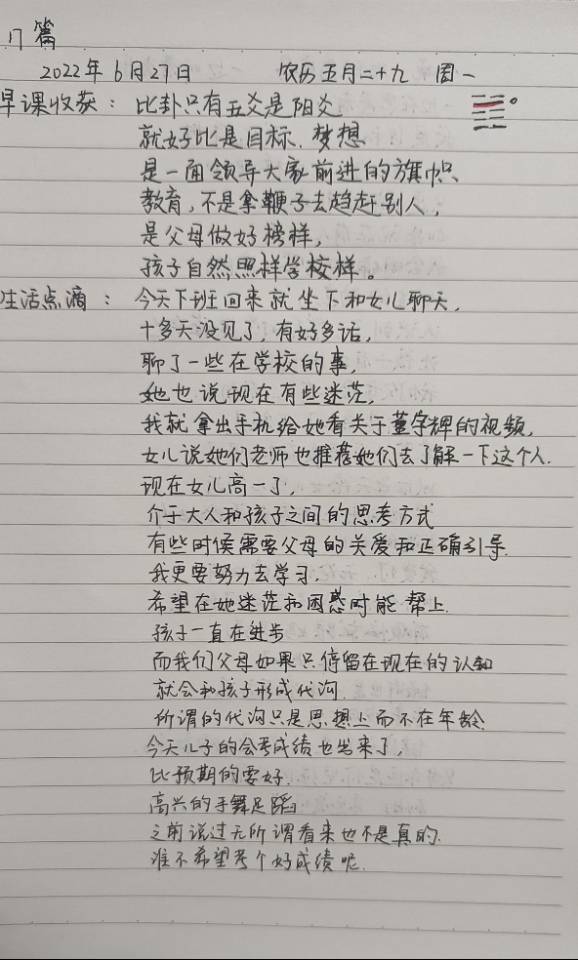 17篇
2022年6月27日 农历五月二十九 周一
早课收获：比卦只有五爻是阳爻
就好比是目标、梦想
是一面领导大家前进的旗帜、
教育，不是拿鞭子去趋赶别人，
是父母做好榜样，
孩子自然照样学校样。
生活点滴：今天下班回来就坐下和女儿聊天，
十多天没见了，有好多话，
聊了一些在学校的事，
她也说现在有些迷茫，
我就拿出手机给她看关于董宇辉的视频，
女儿说她们老师也推荐她们去了解一下这个人.
现在女儿高一了，
介于大人和孩子之间的思考方式
有些时候需要父母的关爱和正确引导.
我更要努力去学习.
希望在她迷茫和困惑时能帮上.
孩子一直在进步
而我们父母如果只停留在现在的认知
就会和孩子形成代沟.
所谓的代沟只是思想上而不在年龄.
今天儿子的会考成绩也出来了，
比预期的要好.
高兴的手舞足蹈
之前说过无所谓看来也不是真的.
谁不希望考个好成绩呢.